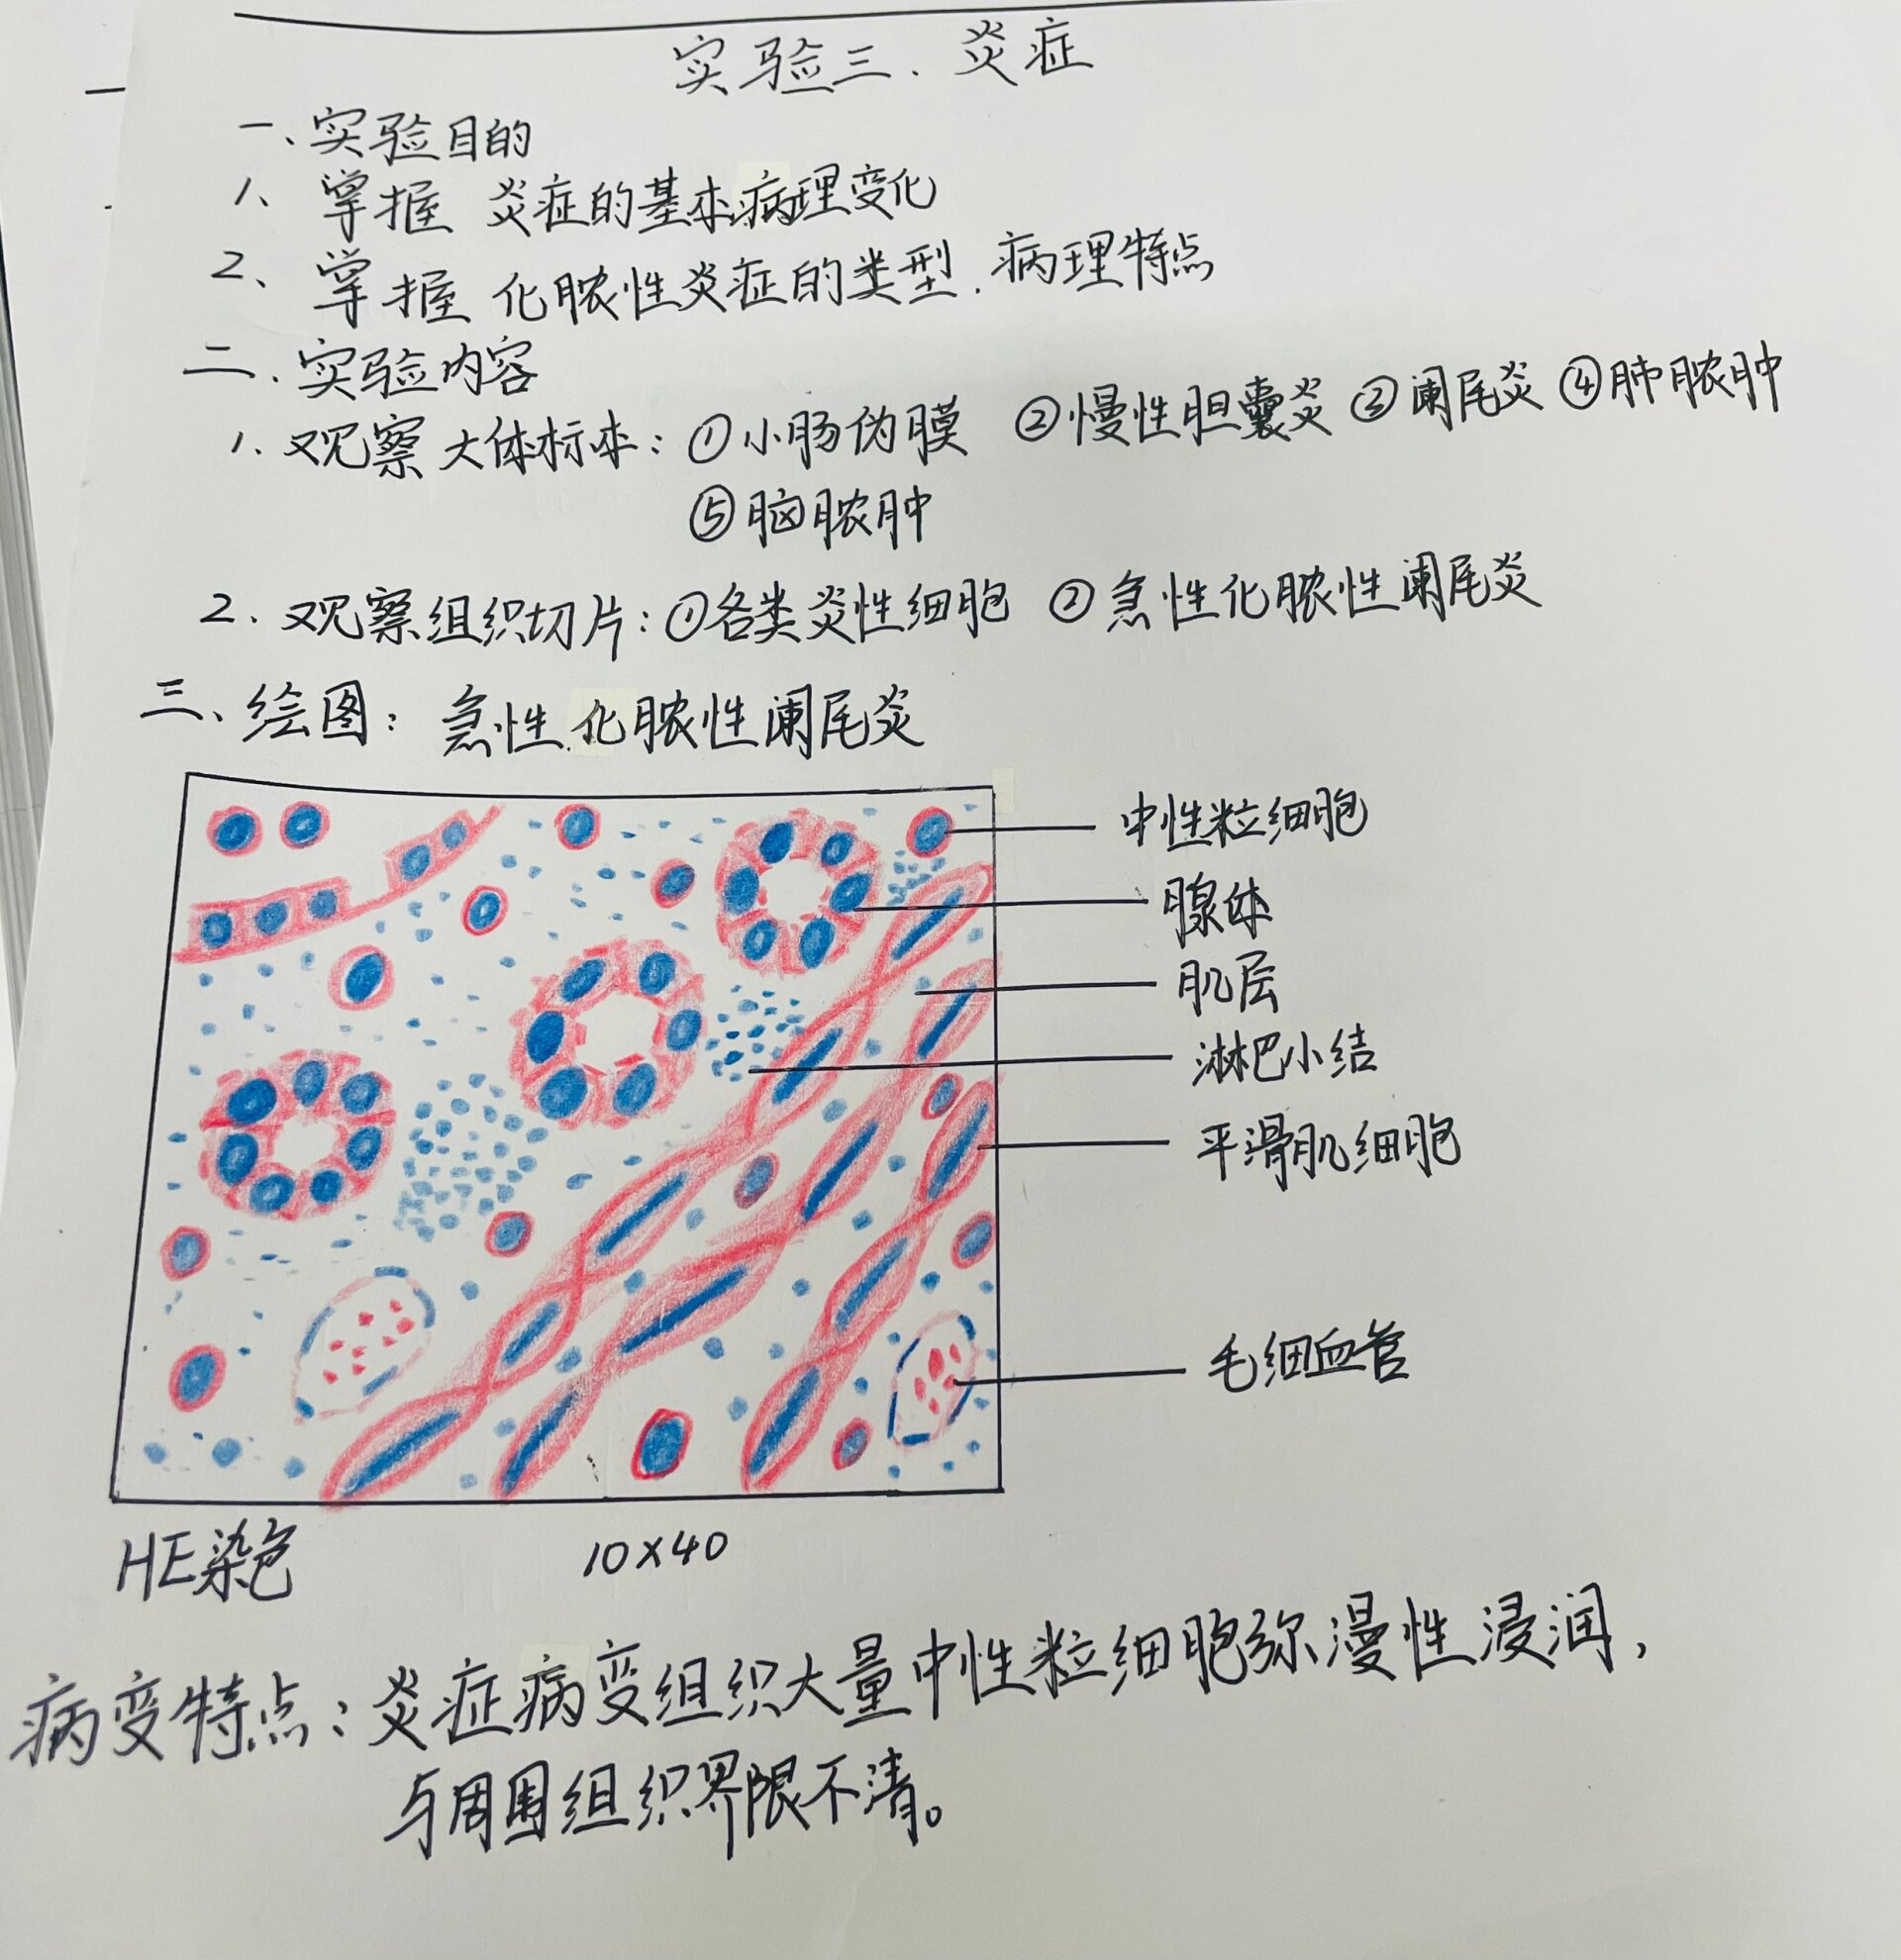 实验三.炎症
一、实验目的
1、掌握 炎症的基本病理变化
2、掌握 化脓性炎症的类型.病理特点
二.实验内容
1.观察大体标本:①小肠伪膜 ②慢性胆囊炎 ③阑尾炎 ④肺脓肿
⑤脑脓肿
2.观察组织切片:①各类炎性细胞 ②急性化脓性阑尾炎
三、绘图:急性化脓性阑尾炎
中性粒细胞
腺体
肌层
淋巴小结
平滑肌细胞
毛细血管
HE染色 10×40
病变特点:炎症病变组织大量中性粒细胞弥漫性浸润,
与周围组织界限不清。